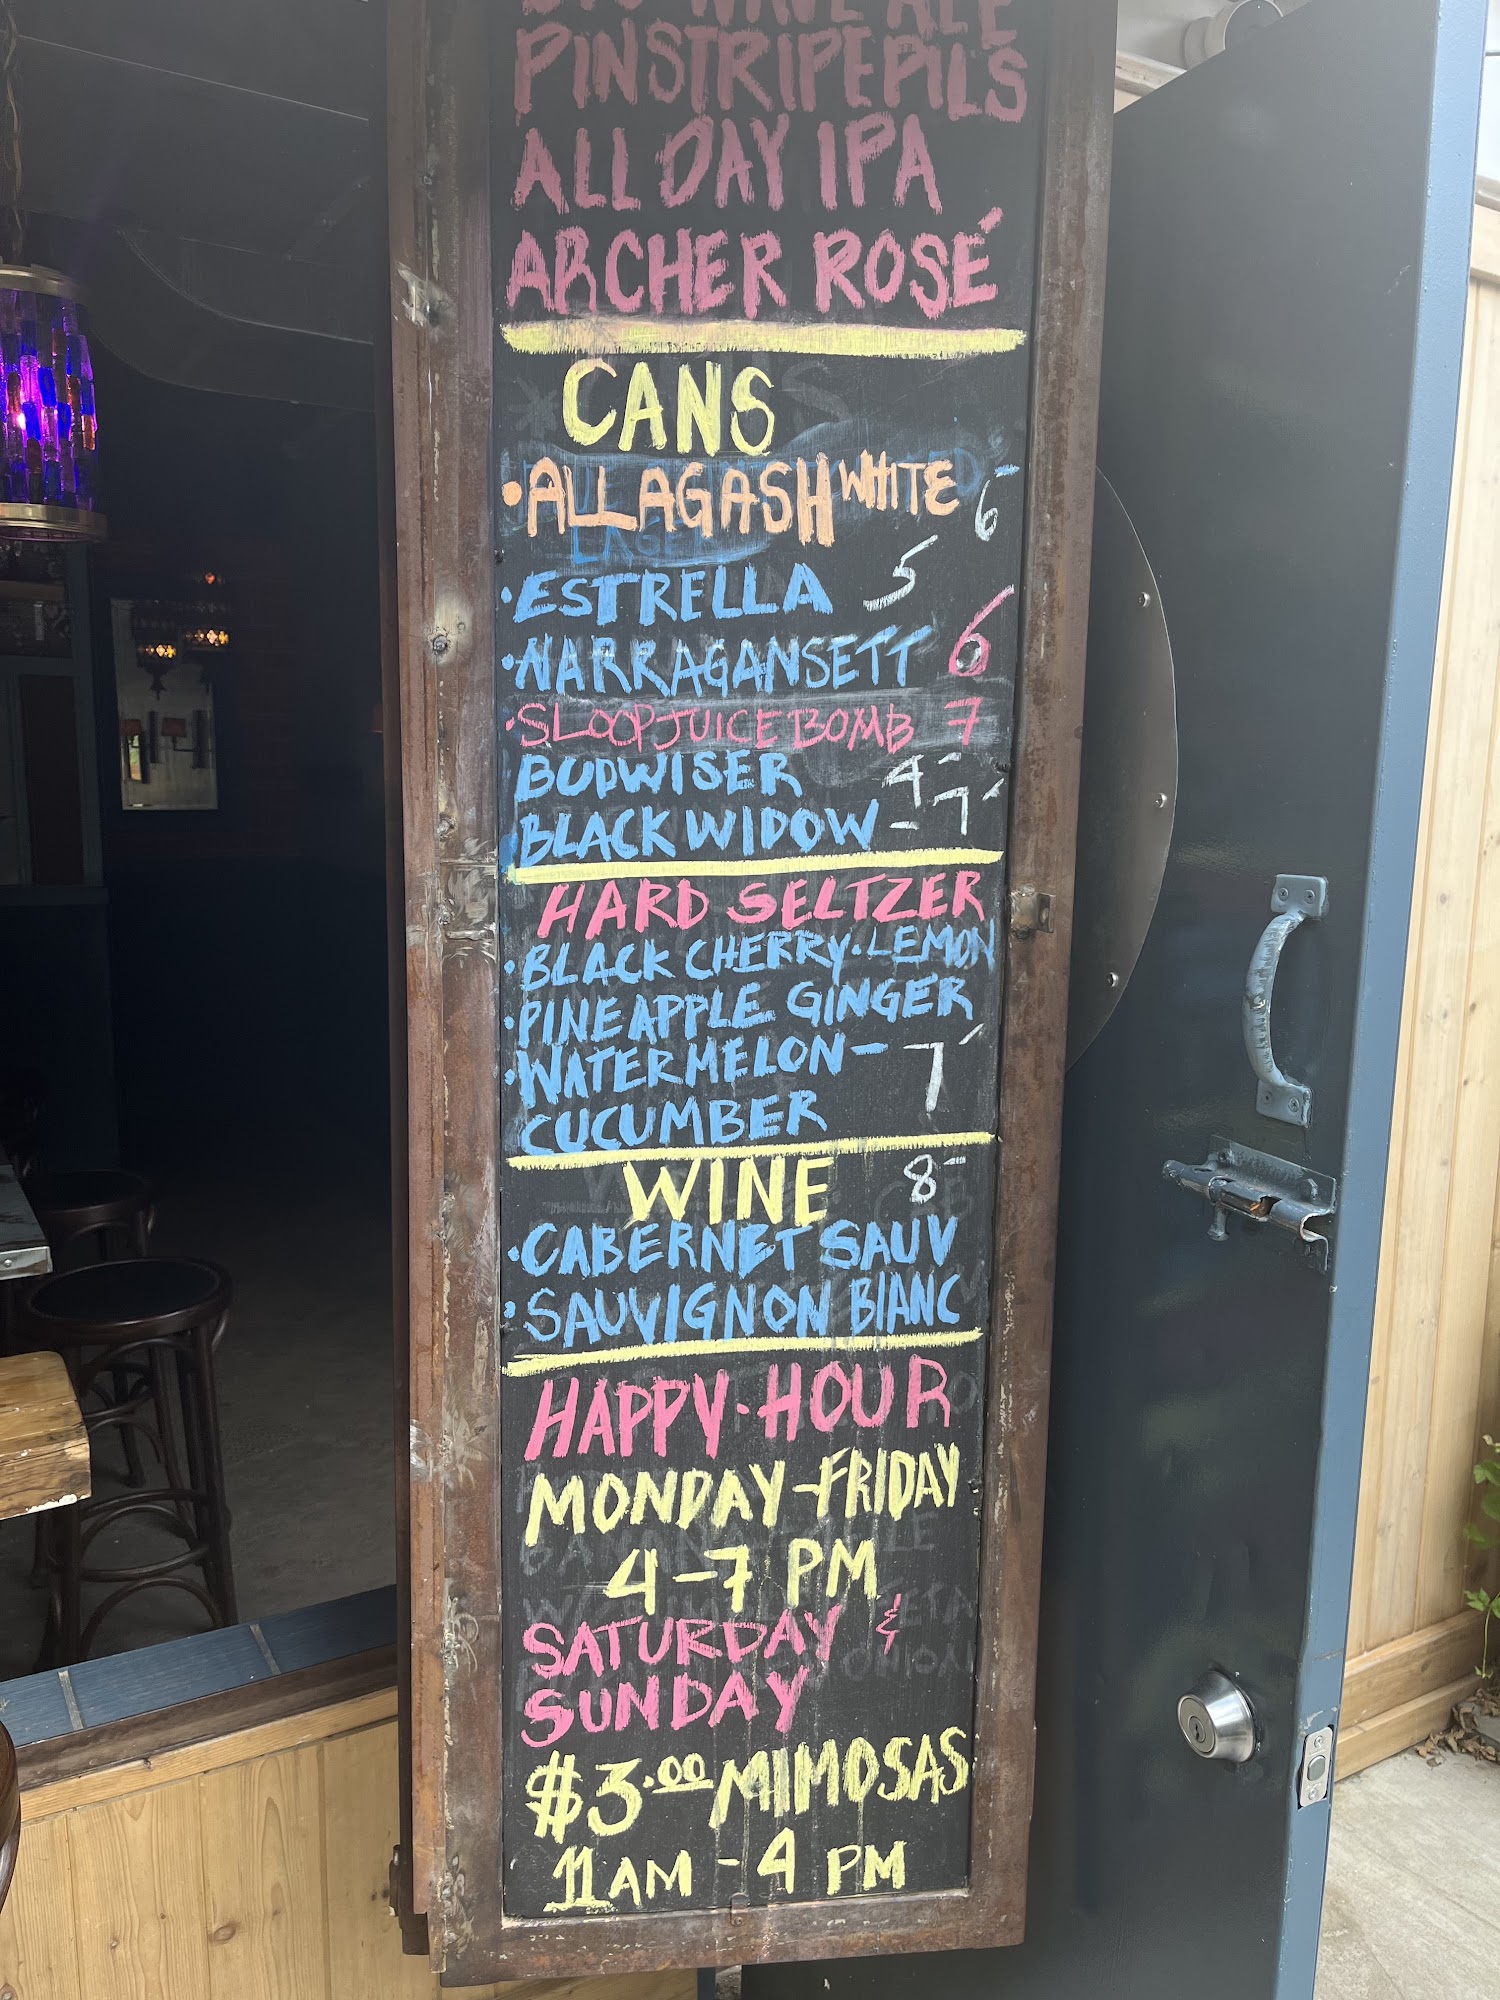 BIG WAVE ALE
PINSTRIPE PILS
ALL DAY IPA
ARCHER ROSÉ
CANS
·ALLAGASH WHITE 6-
·ESTRELLA 5
·NARRAGANSETT 6
·SLOOP JUICE BOMB 7
BUDWISER 4-
BLACK WIDOW - 7-
HARD SELTZER
·BLACK CHERRY·LEMON
·PINEAPPLE GINGER
·WATERMELON - 7-
CUCUMBER
WINE 8-
·CABERNET SAUV
·SAUVIGNON BIANC
HAPPY·HOUR
MONDAY-FRIDAY
4-7 PM
SATURDAY &
SUNDAY
$3.00 MIMOSAS
11AM - 4 PM